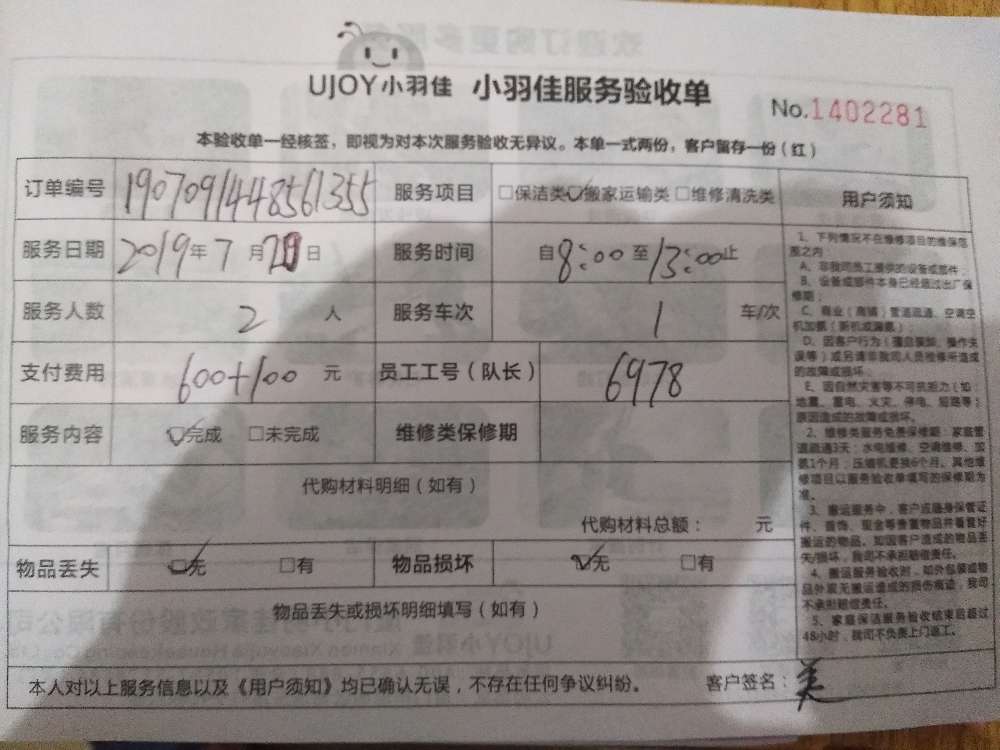 UJOY小羽佳 小羽佳服务验收单
No.1402281
本验收单一经核签，即视为对本次服务验收无异议。本单一式两份，客户留存一份（红）
订单编号 1907091448561355 服务项目 □保洁类☑搬家运输类□维修清洗类
服务日期 2019年7月 日 服务时间 自8:00至13:00止
服务人数 2 人 服务车次 1 车/次
支付费用 600+100 元 员工工号（队长） 6978
服务内容 ☑完成 □未完成 维修类保修期
代购材料明细（如有）
代购材料总额： 元
物品丢失 ☑无 □有 物品损坏 ☑无 □有
物品丢失或损坏明细填写（如有）
本人对以上服务信息以及《用户须知》均已确认无误，不存在任何争议纠纷。 客户签名：美
用户须知
1、下列情况不在维修项目的维保范
围之内
A、非我司员工提供的设备或部件；
B、设备或部件本身已经超过出厂保
修期；
C、商业（商铺）管道疏通、空调空
机加氨（新机或漏氨）；
D、因客户行为（擅自 、操作失
误等）或另请非我司人员维修所造成
的故障或损坏；
E、因自然灾害等不可抗拒力（如：
地震、雷电、火灾、停电、短路等）
原因造成的故障或损坏。
2、维修类服务免费保修期：家庭管
道疏通3天；水电维修、空调维修、加
氨1个月；压缩机更换6个月。其他维
修项目以服务验收单填写的保修期为
准。
3、搬运服务中，客户应随身保管证
件、首饰、现金等贵重物品并看管好
搬运的物品，如因客户造成的物品丢
失/损坏，我司不承担赔偿责任。
4、搬运服务验收时，如外包装或物
品外观无搬运造成的损伤痕迹，我司
不承担赔偿责任。
5、家庭保洁服务验收结束后超过
48小时，我司不负责上门返工。